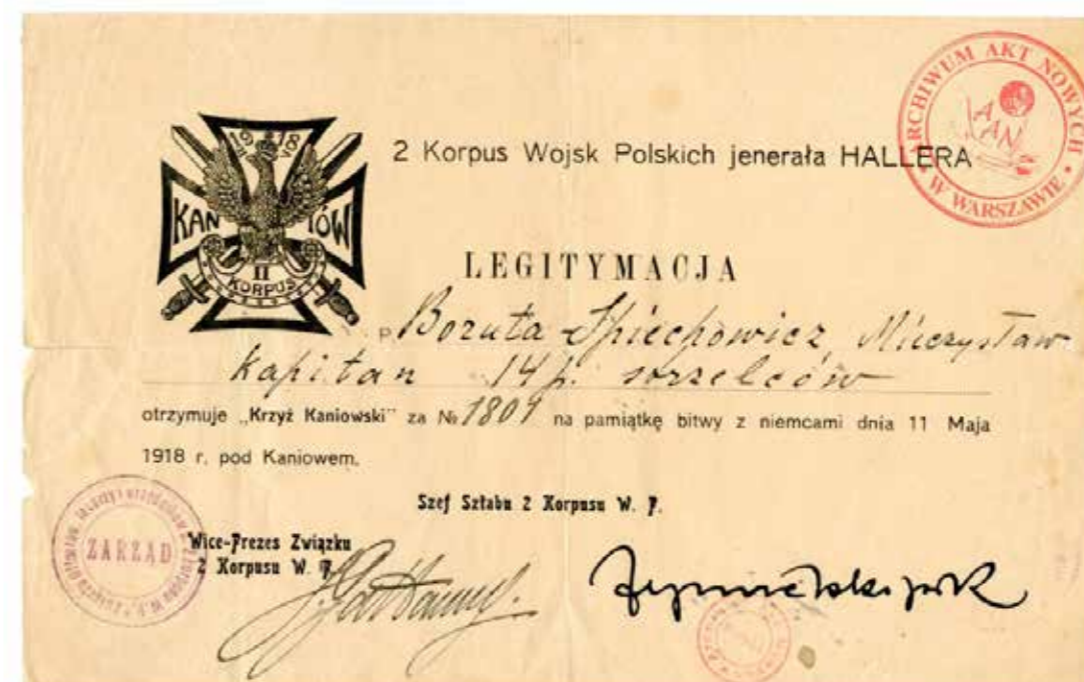 ARCHIWUM AKT NOWYCH
W WARSZAWIE
AAN
2 Korpus Wojsk Polskich jenerała HALLERA
KANIÓW
II
KORPUS
LEGITYMACJA
p Boruta Spiechowicz Mieczysław
kapitan 14 p. strzelców
otrzymuje „Krzyż Kaniowski" za № 1801 na pamiątkę bitwy z niemcami dnia 11 Maja
1918 r. pod Kaniowem.
Szef Sztabu 2 Korpusu W. P.
Wice-Prezes Związku
2 Korpusu W. P.
ZARZĄD